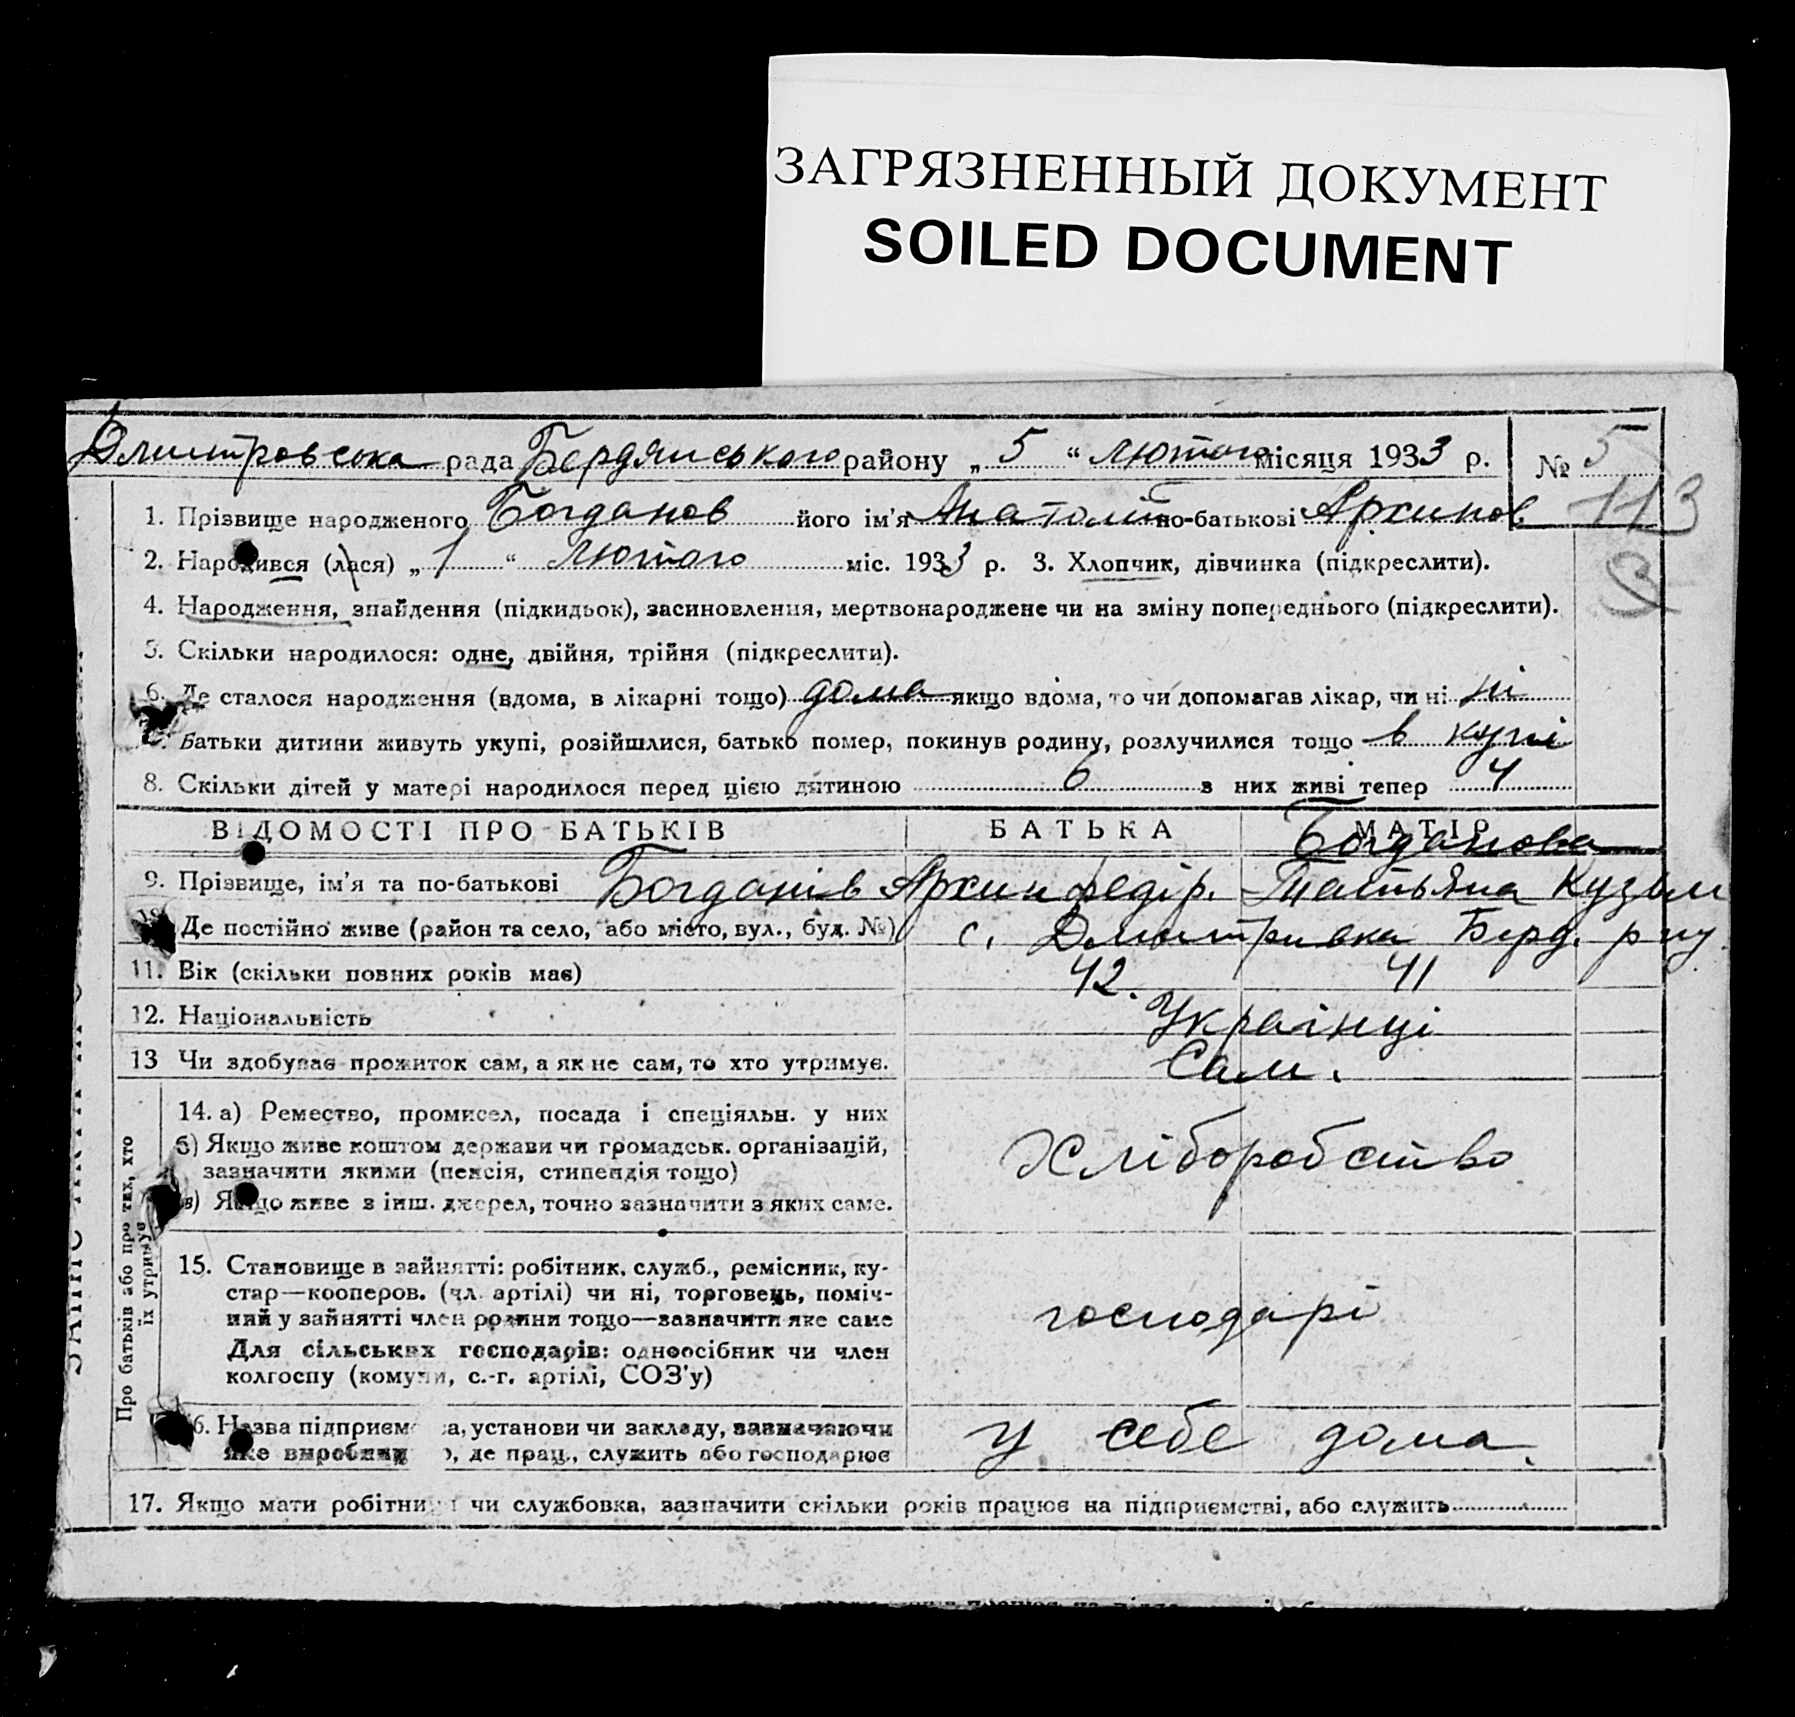 ЗАГРЯЗНЕННЫЙ ДОКУМЕНТ
SOILED DOCUMENT
Дмитровська рада Бердянського району „ 5 “ лютого місяця 1933 р. № 5
113
1. Прізвище народженого Богданов його ім'я Анатолій по-батькові Архипов.
2. Народився (лася) „ 1 “ лютого міс. 1933 р. 3. Хлопчик, дівчинка (підкреслити).
4. Народження, знайдення (підкидьок), засиновлення, мертвонароджене чи на зміну попереднього (підкреслити).
5. Скільки народилося: одне, двійня, трійня (підкреслити).
6. Де сталося народження (вдома, в лікарні тощо) дома якщо вдома, то чи допомагав лікар, чи ні ні
Батьки дитини живуть укупі, розійшлися, батько помер, покинув родину, розлучилися тощо в купі
8. Скільки дітей у матері народилося перед цією дитиною 6 з них живі тепер 4
ВІДОМОСТІ ПРО БАТЬКІВ БАТЬКА МАТІР
Богданова
9. Прізвище, ім'я та по-батькові Богданів Архип Федір. Татьяна Кузьм
10. Де постійно живе (район та село, або місто, вул., буд. №) с. Дмитрівка Берд. р-ну.
11. Вік (скільки повних років має) 42. 41
12. Національність Українці
13 Чи здобуває прожиток сам, а як не сам, то хто утримує. Сам.
Про батьків або про тих, хто
їх утримує
14. а) Ремество, промисел, посада і спеціяльн. у них
б) Якщо живе коштом держави чи громадськ. організацій,
зазначити якими (пенсія, стипендія тощо)
в) Якщо живе з інш. джерел, точно зазначити з яких саме.
Хліборобство
15. Становище в зайнятті: робітник, служб., ремісник, ку-
стар—кооперов. (чл. артілі) чи ні, торговець, поміч-
ний у зайнятті член родини тощо—зазначити яке саме
Для сільських господарів: одноосібник чи член
колгоспу (комуни, с.-г. артілі, СОЗ'у)
господарі
16. Назва підприємства, установи чи закладу, зазначаючи
яке виробниц о, де прац., служить або господарює
у себе дома.
17. Якщо мати робітниця чи службовка, зазначити скільки років працює на підприємстві, або служить